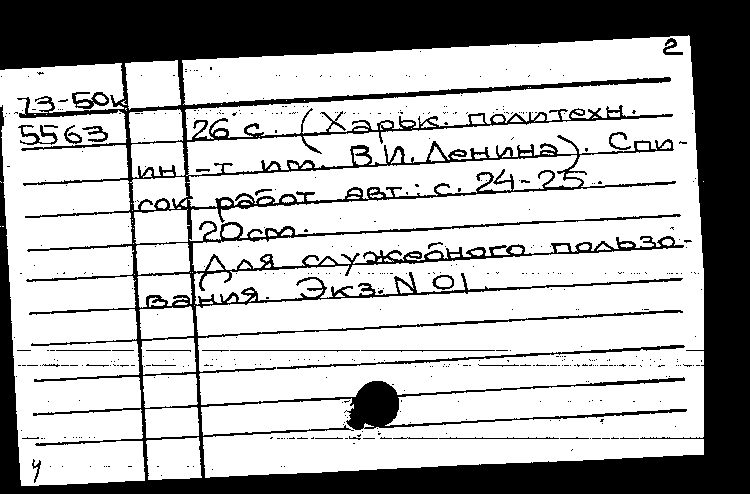 2
73-50к
5563 26 с. (Харьк. политехн.
ин-т им. В.И. Ленина). Спи-
сок работ авт.: с. 24-25.
20 см.
Для служебного пользо-
вания. Экз. N 01.
ч